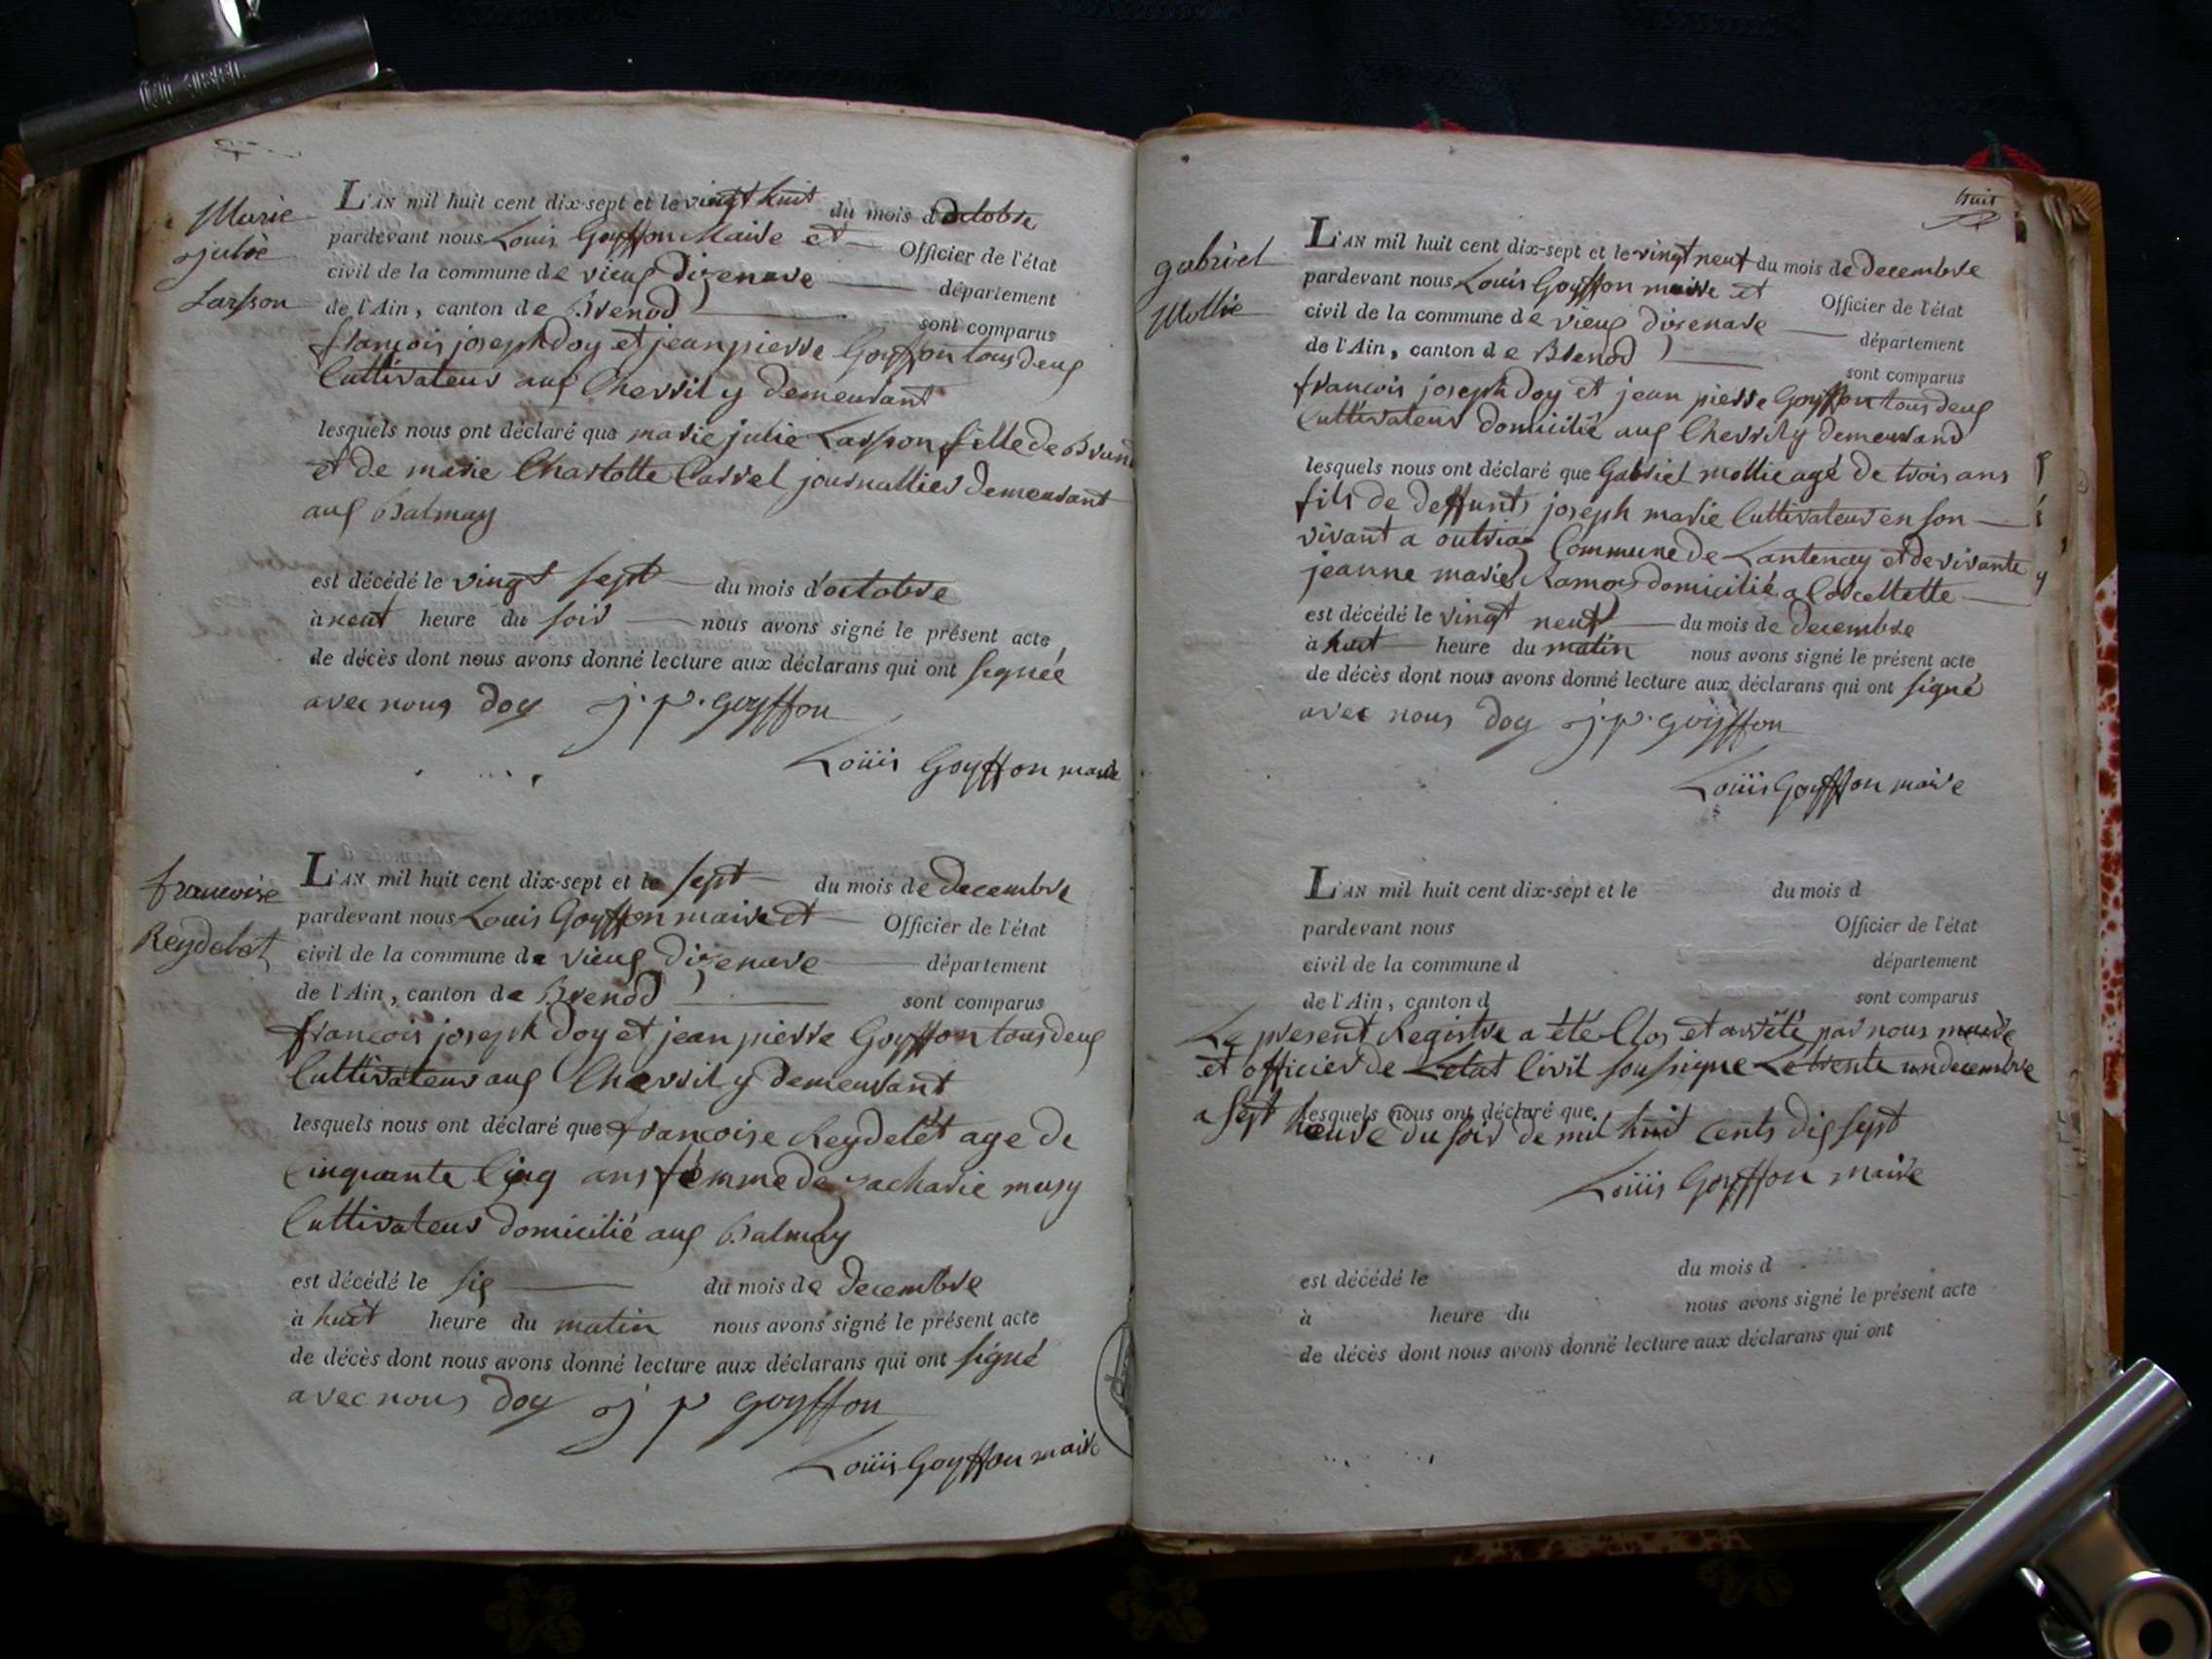 Marie
julie
Larsson
L'AN mil huit cent dix-sept et le vingt huit du mois d'octobre
pardevant nous Louis Goyffon Maire et Officier de l'état
civil de la commune de vieux dizenave département
de l'Ain, canton de Brenod sont comparus
françois joseph doy et jean pierre Goyffon tous deux
Cultivateur aux Cherril y demeurant
lesquels nous ont déclaré que marie julie Larsson fille de Brun
et de marie Charlotte Carrel journallier demeurant
aux Balmay
est décédé le vingt sept du mois d'octobre
à neuf heure du soir nous avons signé le présent acte
de décès dont nous avons donné lecture aux déclarans qui ont signée
avec nous doy j. p. goyffon
Loüis Goyffon maire
francoise
Reydelet
L'AN mil huit cent dix-sept et le sept du mois de decembre
pardevant nous Louis Goyffon maire et Officier de l'état
civil de la commune de vieux dizenave département
de l'Ain, canton de Brenod sont comparus
françois joseph doy et jean pierre Goyffon tous deux
Cultivateur aux Cherril y demeurant
lesquels nous ont déclaré que francoise Reydelet age de
Cinquante Cinq ans femme de zacharie musy
Cultivateur domicilié aux Balmay
est décédé le six du mois de decembre
à huit heure du matin nous avons signé le présent acte
de décès dont nous avons donné lecture aux déclarans qui ont signé
avec nous doy j p goyffon
Loüis Goyffon maire
huit
gabriel
Mollie
L'AN mil huit cent dix-sept et le vingt neuf du mois de decembre
pardevant nous Louis Goyffon maire et Officier de l'état
civil de la commune de vieux dizenave département
de l'Ain, canton de Brenod sont comparus
francois joseph doy et jean pierre Goyffon tous deux
Cultivateur domicilié aux Cherril y demeurand
lesquels nous ont déclaré que Gabriel mollie agé de trois ans
fils de deffunts joseph marie Cultivateur en son
vivant a outriaz Commune de Lantenay et de vivante
jeanne marie Ramos domicilié a
est décédé le vingt neuf du mois de decembre
à huit heure du matin nous avons signé le présent acte
de décès dont nous avons donné lecture aux déclarans qui ont signé
avec nous doy j. p. goyffon
Loüis Goyffon maire
L'AN mil huit cent dix-sept et le du mois d
pardevant nous Officier de l'état
civil de la commune d département
de l'Ain, canton d sont comparus
Le present Registre a été Clos et arrêté par nous maire
et officier de Letat Civil soussigne Le trente un decembre
lesquels nous ont déclaré que
a sept heure du soir de mil huit cents dix sept
Loüis Goyffon maire
est décédé le du mois d
à heure du nous avons signé le présent acte
de décès dont nous avons donné lecture aux déclarans qui ont